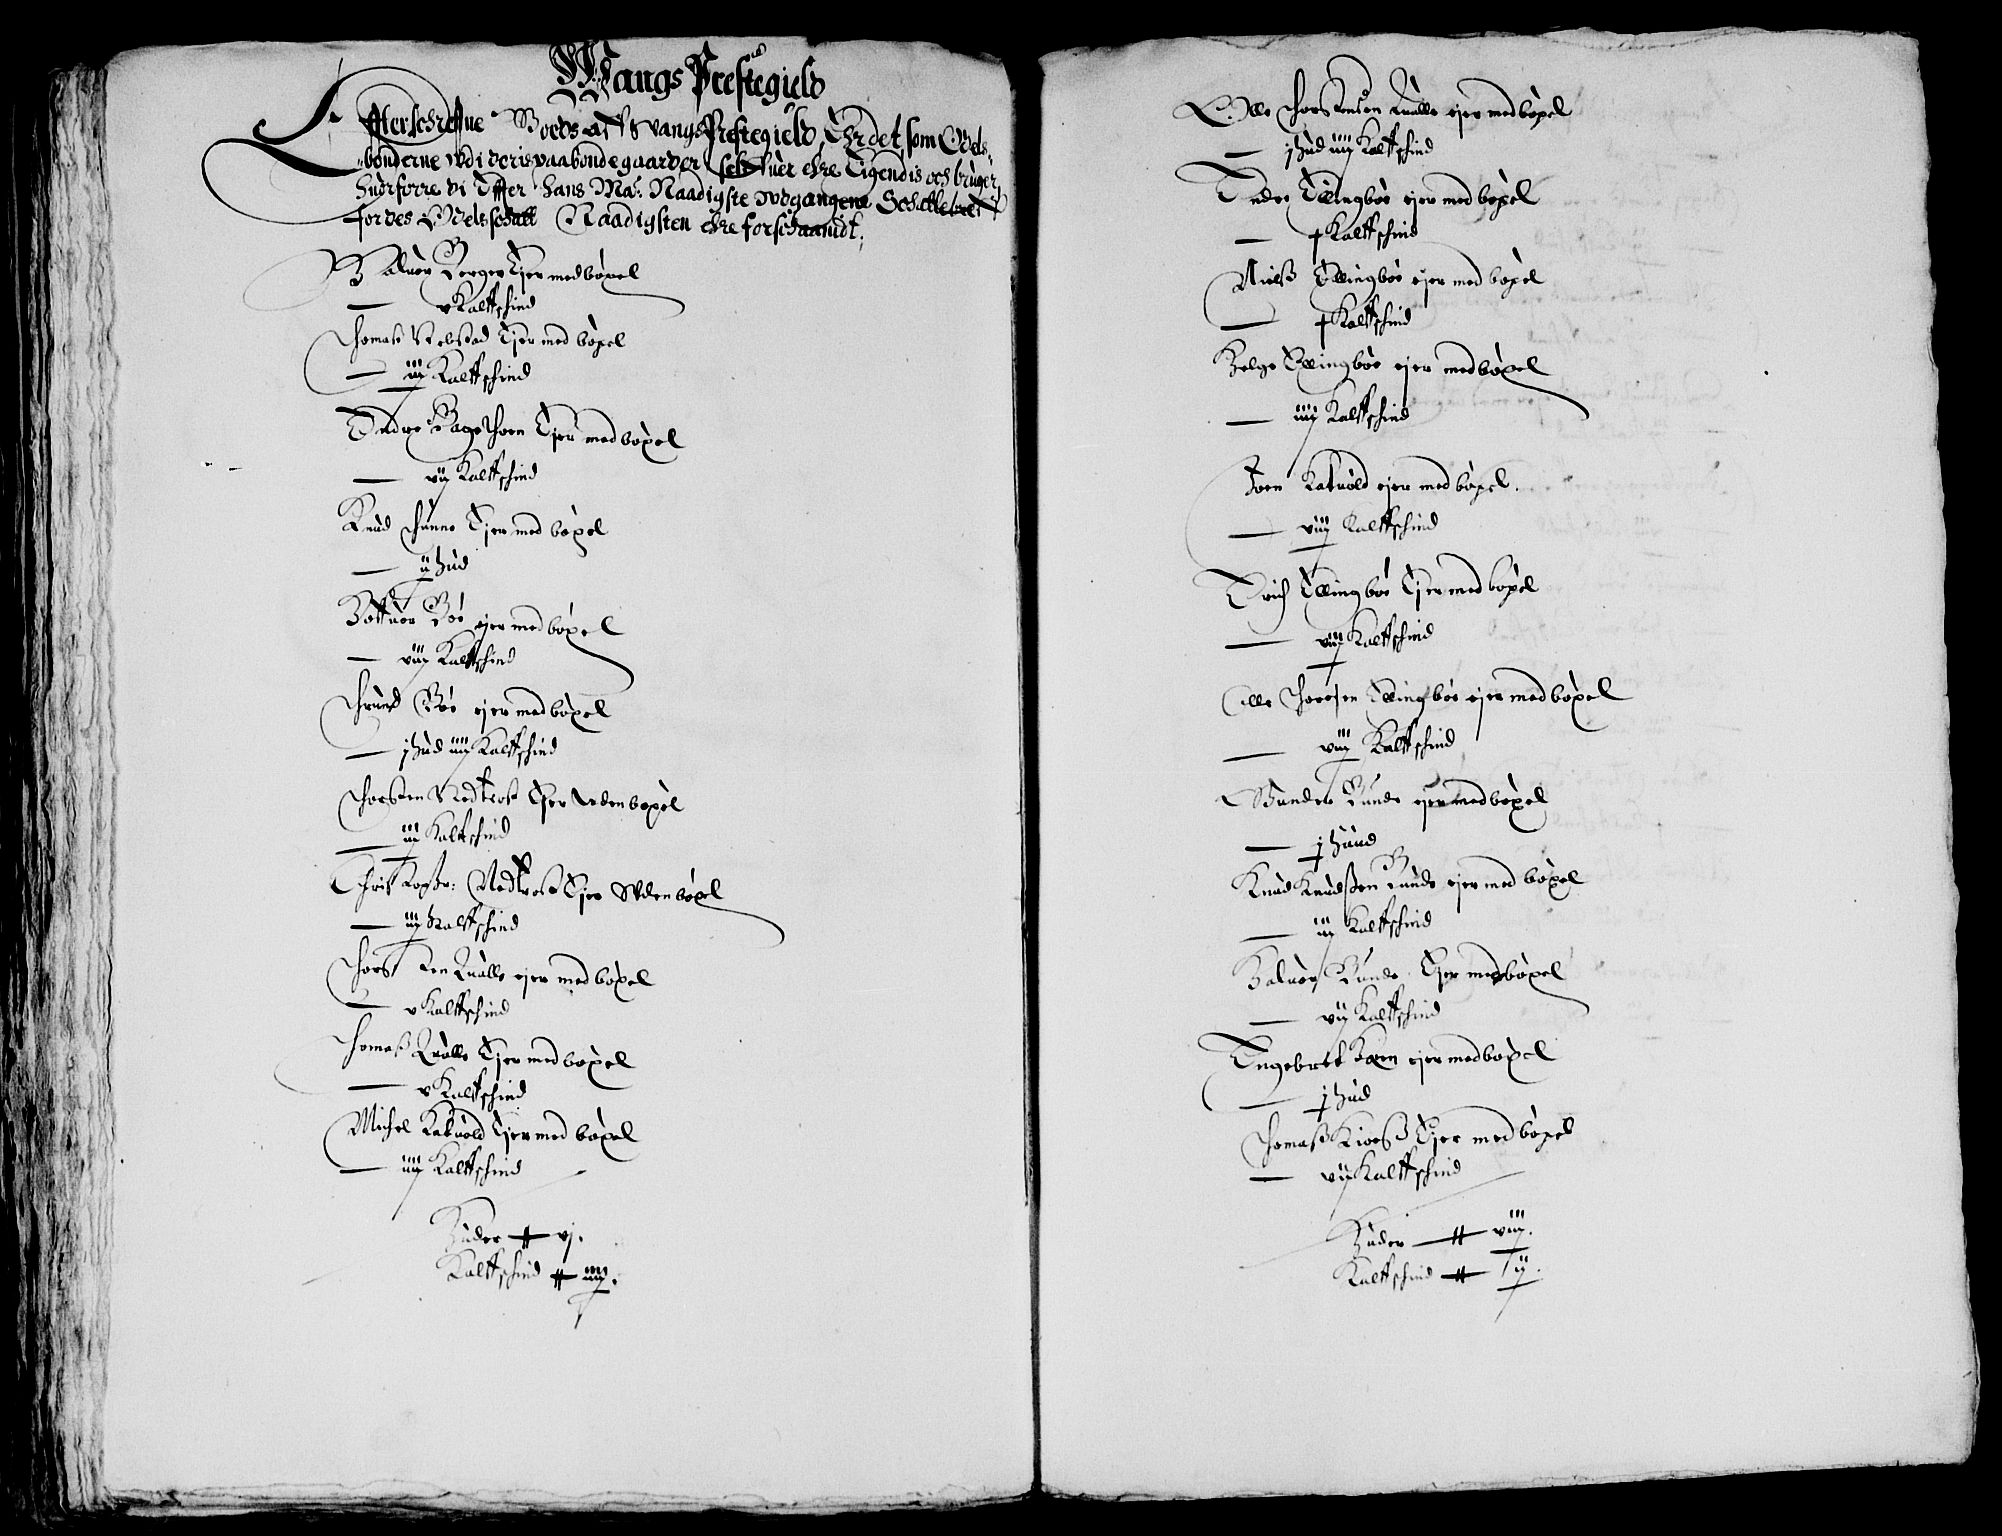 Wangs Prestegield
Effterschreffne Goeds aff Wangs Prestegield, Ehr det som Odels-
bønderne udi deris paabonde gaarder Selffuer ehre Eigendis och bruger,
huorforre di Effter hans Ma: Naadigste Schatte
for des Odels schatt Naadigsten ehre forschaanidt.
Haluor Berger Ejer med bøxel
— v Kalffschind
Thomas Ejer med bøxel
— iiij Kalffschind
Endre Bagethoen Ejer med bøxel
— vij Kalffschind
Knud Thunne Ejer med bøxel
— ij hud
Bottuer Bøe ejer med bøxel
— viij Kalffschind
Thrund Bøe ejer med bøxel
— j hud iiij Kalffschind
Thorsten Nedtrost Ejer uden bøxel
— iij Kalffschind
Nedtrost Ejer Uden bøxel
— iij Kalffschind
Thorsten Qualle ejer med bøxel
— v Kalffschind
Thomas Qualle Ejer med bøxel
— v Kalffschind
Michel Kaluold Ejer med bøxel
— iiij Kalffschind
Huder — vj.
Kalffschind — iiij.
Olle Thorstensen Qualle ejer med bøxel
— j hud iiij Kalffschind
Endre Ellingbøe ejer med bøxel
— Kalffschind
Niels Ellingbøe ejer med bøxel
— Kalffschind
Helge Ellingbøe ejer med bøxel
— iiij Kalffschind
Joen Kaluold ejer med bøxel.
— viij Kalffschind
Erich Ellingbøe Ejer med bøxel
— viij Kalffschind
Olle Thoersen Ellingbøe ejer med bøxel
— viij Kalffschind
Gunder Bunde ejer med bøxel
— j huud
Knud Knudssen Bunde ejer med bøxel
— iij Kalffschind
Haluor Bunde Ejer med bøxel
— vij Kalffschind
Engebret Hoen ejer med bøxel
— j hud
Thomas Kioes Ejer med bøxel
— vij Kalffschind
Huder — viij.
Kalffschind — ij.